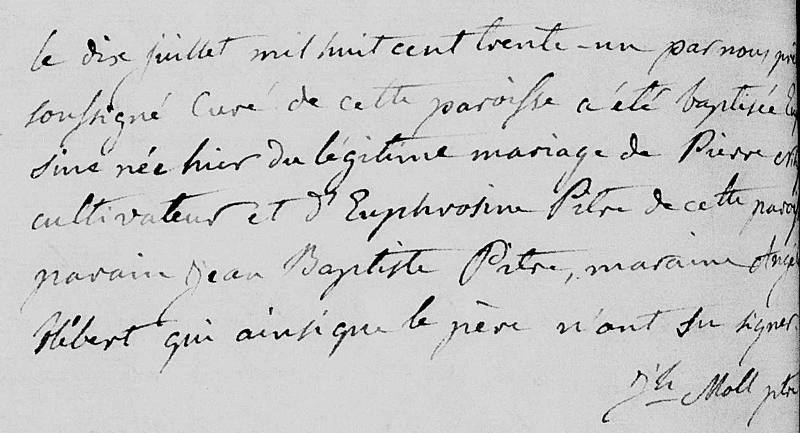 le dix juillet mil huit cent trente-un par nous
soussigné Curé de cette paroisse a été baptisée
sine née hier du légitime mariage de Pierre
cultivateur et d'Euphrosine Pitre de cette
parain Jean Baptiste Pitre, maraine
Hébert qui ainsi que le père n'ont su signer.
Jh Moll ptre